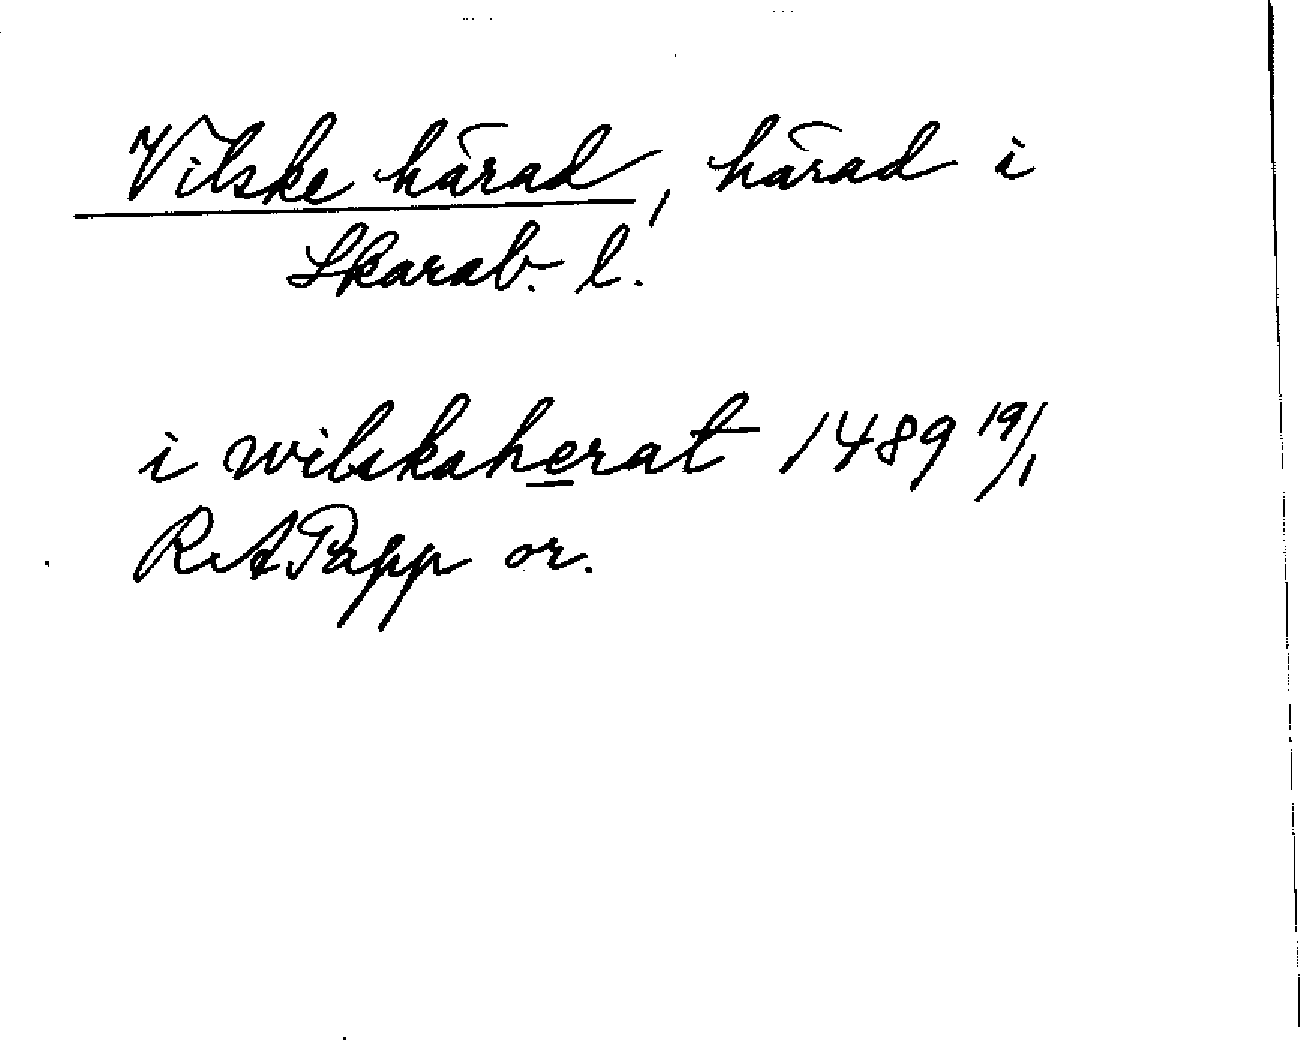 Vilske härad, härad i
Skarab. l.
i wilskaherat 1489 19/1
RAPapp or.